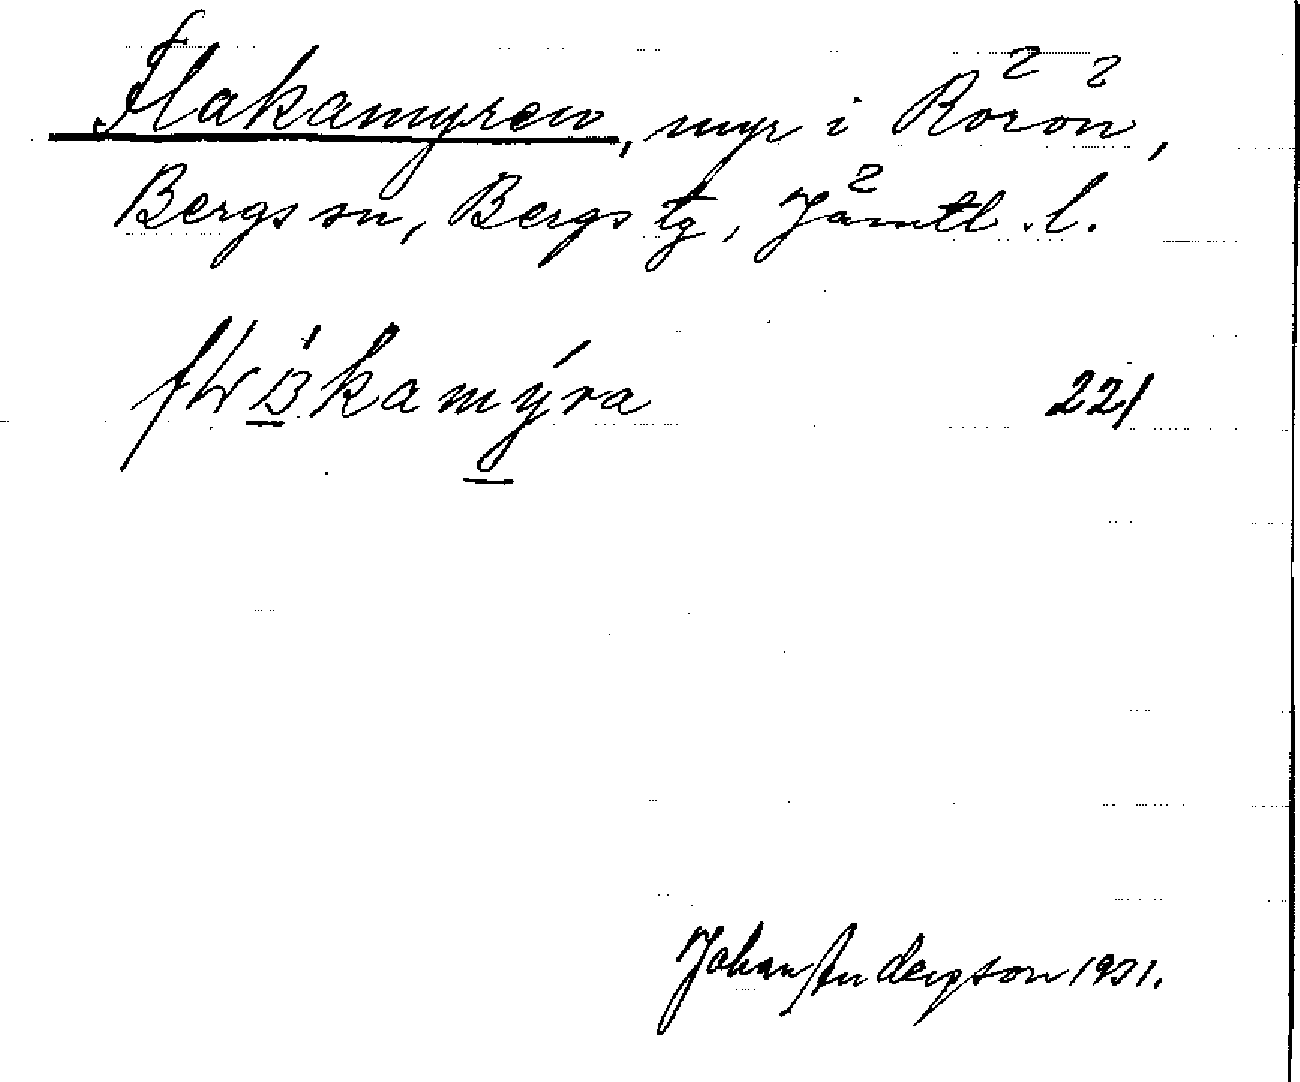 Flakamyren, myr i Rörön,
Bergs sn, Bergs tg, Jämtl. l.
221
Johan Anderson 1931.